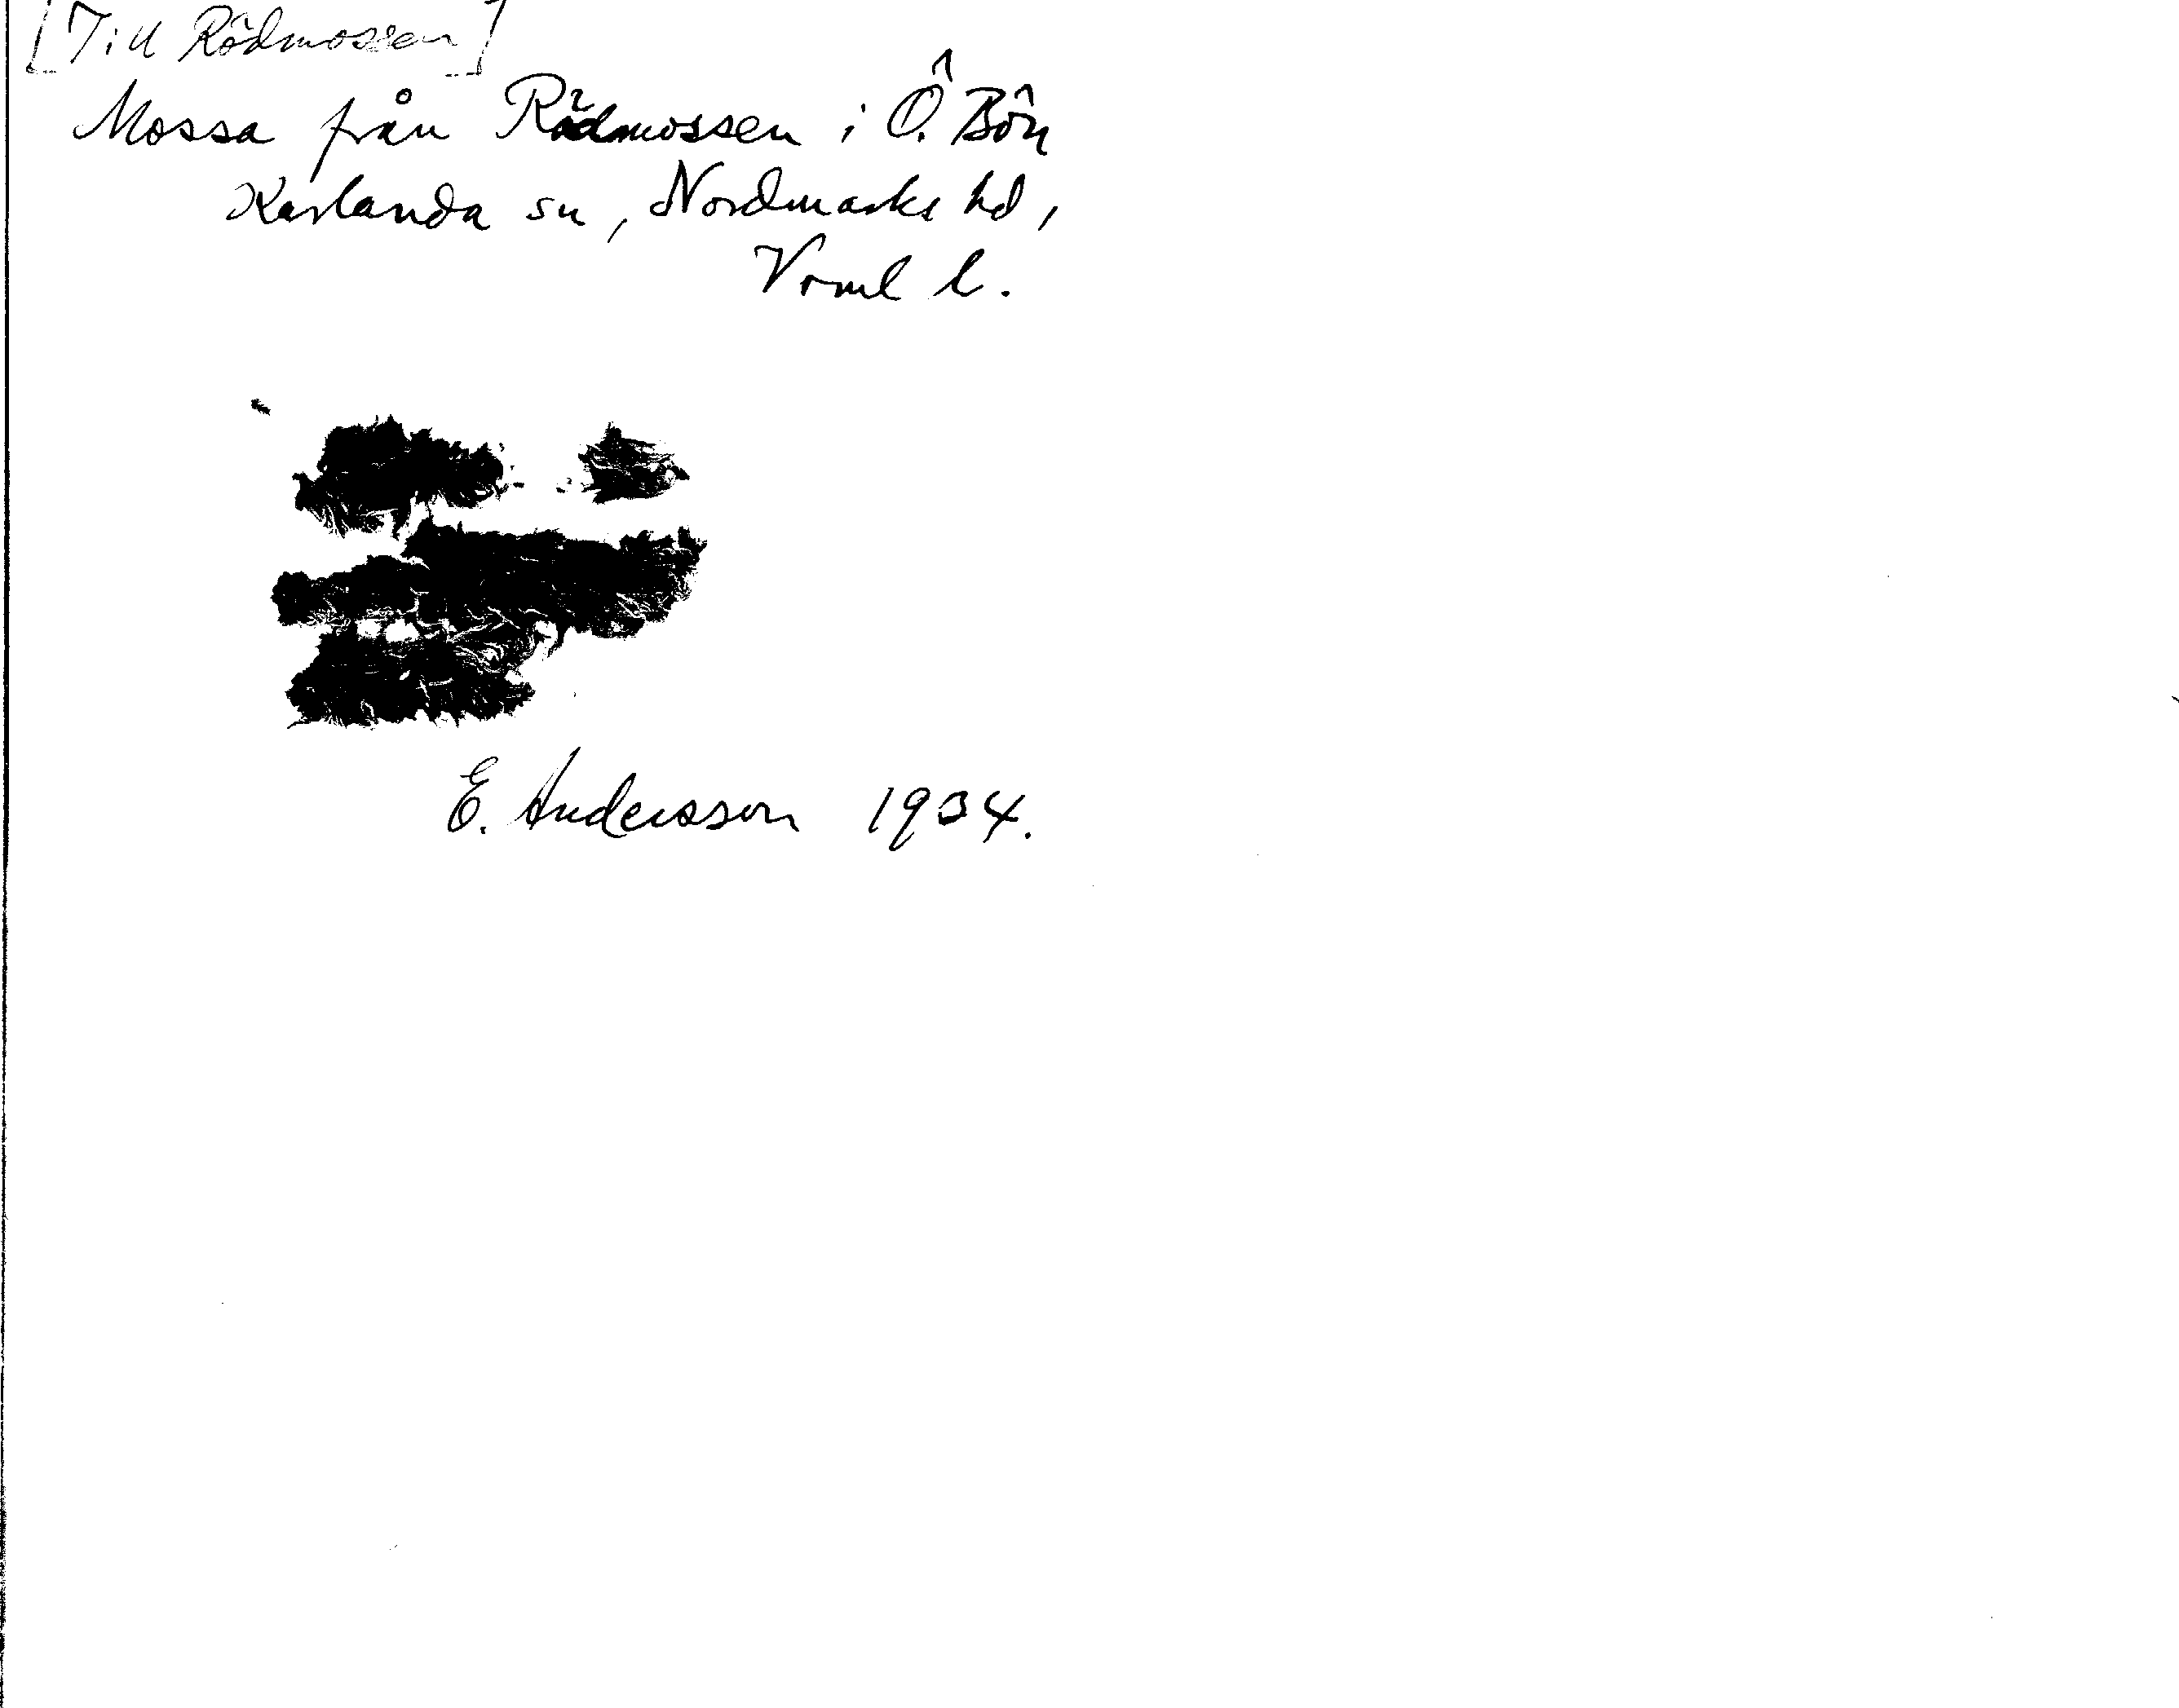 [Till Rödmossen]
Mossa från Rödmossen i Ö. Bön
Karlanda sn, Nordmarks hd,
Vrml l.
E. Andersson 1934.